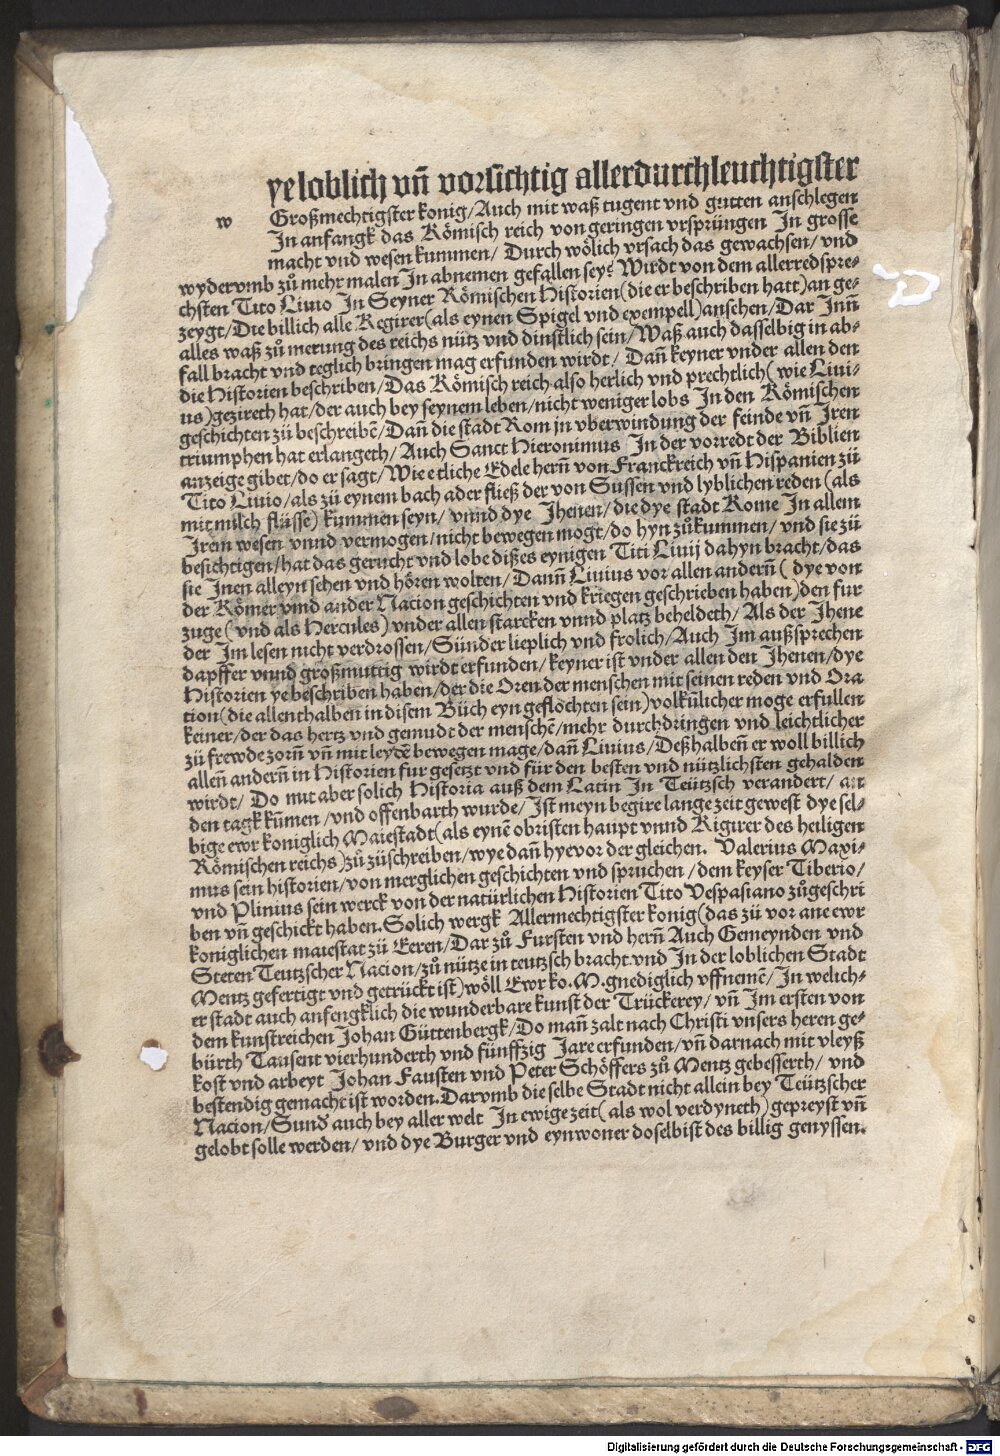 yeloblich vñ vorsichtig allerdurchleuchtigster
w
Großmechtigster konig/Auch mit waß tugent vnd gutten anschlegen
In anfangk das Römisch reich von geringen vrsprüngen In grosse
macht vnd wesen kummen/ Durch wölich vrsach das gewachsen/ vnd
wydervmb zů mehr malen In abnemen gefallen sey? Wirdt von dem allerredspre-
chsten Tito Liuio In Seyner Römischen Historien(die er beschriben hatt)an ge-
zeygt/Die billich alle Regirer(als eynen Spigel vnd exempell)ansehen/Dar Inñ
alles waß zů merung des reichs nütz vnd dinstlich sein/Waß auch dasselbig in ab-
fall bracht vnd teglich bringen mag erfunden wirdt/ Dañ keyner vnder allen den
die Historien beschriben/Das Römisch reich also herlich vnd prechtlich( wie Liui-
us)gezireth hat/der auch bey seynem leben/nicht weniger lobs In den Römischen
geschichten zü beschreibē/Dañ die stadt Rom jn vberwindung der feinde vñ Iren
triumphen hat erlangeth/Auch Sanct Hieronimus In der vorredt der Biblien
anzeige gibet/do er sagt/Wie etliche Edele herñ von Franckreich vñ Hispanien zü
Tito Liuio/als zü eynem bach ader fließ der von Süssen vnd lyblichen reden(als
mit milch flüsse) kummen seyn/ vnnd dye Jhenen/die dye stadt Rome In allem
Irem wesen vnnd vermogen/nicht bewegen mogt/do hyn zůkummen/vnd sie zü
besichtigen/hat das gerucht vnd lobe dißes eynigen Titi Liuij dahyn bracht/das
sie Inen alleyn sehen vnd hören wolten/Danñ Liuius vor allen anderñ( dye von
der Römer vnnd ander Nacion geschichten vnd kriegen geschrieben haben)den fur
zuge(vnd als Hercules)vnder allen starcken vnnd platz beheldeth/Als der Jhene
der Im lesen nicht verdrossen/Sünder lieplich vnd frolich/Auch Im außsprechen
dapffer vnnd großmuttig wirdt erfunden/keyner ist vnder allen den Jhenen/dye
Historien ye beschriben haben/der die Oren der menschen mit seinen reden vnd Ora
tion(die allenthalben in disem Büch eyn geflöchten sein)volkũlicher moge erfullen
keiner/der das hertz vnd gemudt der menschē/mehr durchdringen vnd leichtlicher
zü frewde zorñ vñ mit leydē bewegen mage/dañ Liuius/Deßhalbeñ er woll billich
alleñ anderñ in Historien fur gesetzt vnd für den besten vnd nützlichsten gehalden
wirdt/ Do mit aber solich Historia auß dem Latin In Teützsch verandert/ an
den tagk kũmen/vnd offenbarth wurde/Ist meyn begire lange zeit gewest dye sel-
bige ewr koniglich Maiestadt(als eynē obristen haupt vnnd Rigirer des heiligen
Römischen reichs)zů züschreiben/wye dañ hyevor der gleichen. Valerius Maxi-
mus sein historien/von merglichen geschichten vnd spruchen/dem keyser Tiberio/
vnd Plinius sein werck von der natürlichen Historien Tito Vespasiano zůgeschri
ben vñ geschickt haben. Solich wergk Allermechtigster konig(das zü vor ane ewr
koniglichen maiestat zü Eeren/Dar zů Fursten vnd herñ Auch Gemeynden vnd
Steten Teutzscher Nacion/zů nütze in teutzsch bracht vnd In der loblichen Stadt
Mentz gefertigt vnd getrückt ist)wöll Ewr ko. M. gnediglich vffnemē/In welich-
er stadt auch anfengklich die wunderbare kunst der Trückerey/ vñ Im ersten von
dem kunstreichen Johan Güttenbergk/Do mañ zalt nach Christi vnsers heren ge-
bürth Tausent vierhunderth vnd fünffzig Jare erfunden/vñ darnach mit vleyß
kost vnd arbeyt Johan Fausten vnd Peter Schöffers zů Mentz gebesserth/ vnd
bestendig gemacht ist worden. Darvmb die selbe Stadt nicht allein bey Teützscher
Nacion/Sund̾ auch bey aller welt In ewige zeit(als wol verdyneth)gepreyst vñ
gelobt solle werden/ vnd dye Burger vnd eynwoner doselbist des billig genyssen.
Digitalisierung gefördert durch die Deutsche Forschungsgemeinschaft - DFG